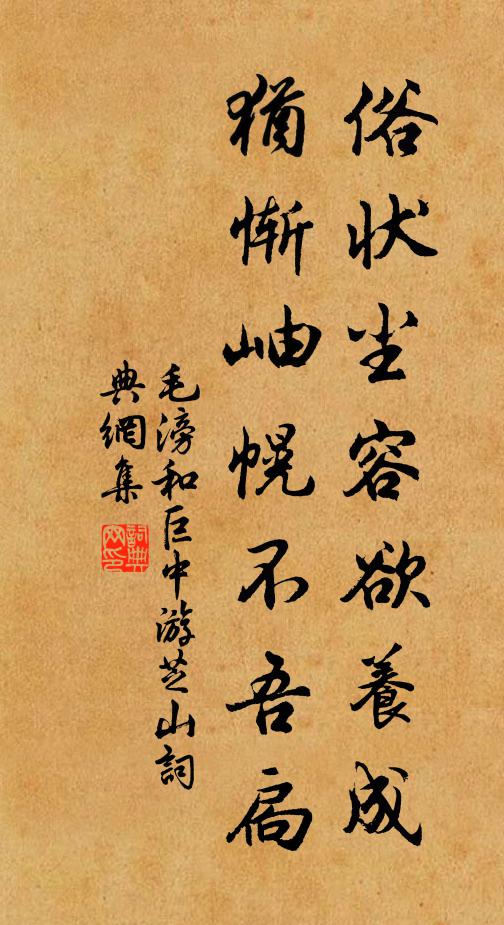 俗状尘容欲養成
猶惭岫幌不吾扃
毛滂和巨中游芝山詞
典網集
詞典网印